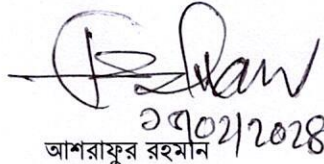 ১৭/০২/২০২৪
আশরাফুর রহমান